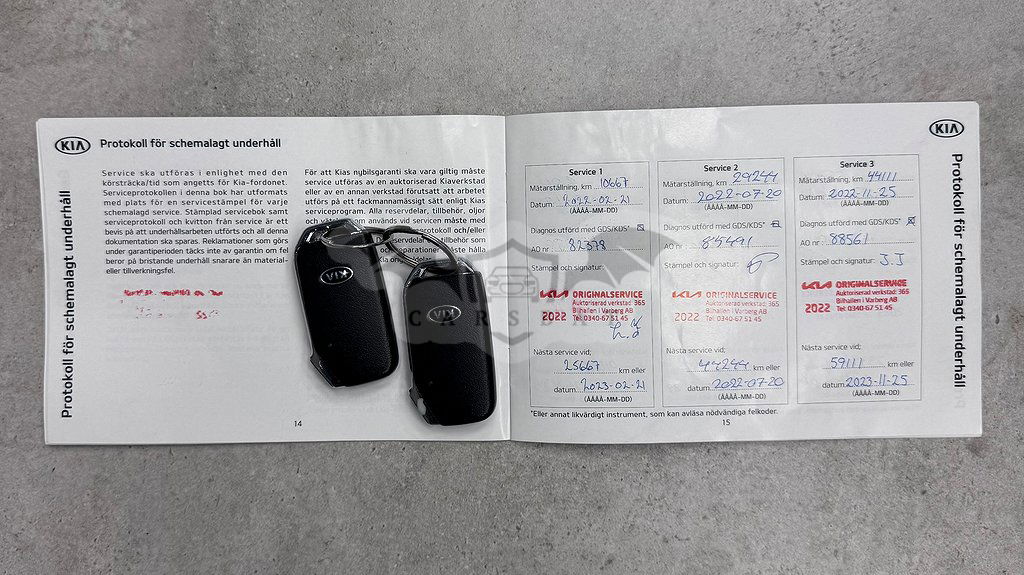 KIA
Protokoll för schemalagt underhåll
Protokoll för schemalagt underhåll
Service ska utföras i enlighet med den
körsträcka/tid som angetts för Kia-fordonet.
Serviceprotokollen i denna bok har utformats
med plats för en servicestämpel för varje
schemalagd service. Stämplad servicebok samt
serviceprotokoll och kvitton från service är ett
bevis på att underhållsarbeten utförts och all denna
dokumentation ska sparas. Reklamationer som görs
under garantiperioden täcks inte av garantin om fel
beror på bristande underhåll snarare än material-
eller tillverkningsfel.
För att Kias nybilsgaranti ska vara giltig måste
service utföras av en auktoriserad Kiaverkstad
eller av en annan verkstad förutsatt att arbetet
utförs på ett fackmannamässigt sätt enligt Kias
serviceprogram. Alla reservdelar, tillbehör, oljor
och som används vid servicen måste med
protokoll och/eller
reservdelar tillbehör som
reparationer måste hålla
Kia
14
KIA
KIA
CARSBA
KIA
Protokoll för schemalagt underhåll
Service 1
Mätarställning, km 10667
Datum: 2022-02-21
(ÅÅÅÅ-MM-DD)
Diagnos utförd med GDS/KDS*
AO nr: 82378
Stämpel och signatur:
KIA ORIGINALSERVICE
Auktoriserad verkstad: 365
Bilhallen i Varberg AB
2022 Tel: 0340-67 51 45
Nästa service vid;
25667 km eller
datum 2023-02-21
(ÅÅÅÅ-MM-DD)
Service 2
Mätarställning, km 29244
Datum: 2022-07-20
(ÅÅÅÅ-MM-DD)
Diagnos utförd med GDS/KDS*
AO nr: 85491
Stämpel och signatur:
KIA ORIGINALSERVICE
Auktoriserad verkstad: 365
Bilhallen i Varberg AB
2022 Tel: 0340-67 51 45
Nästa service vid;
44244 km eller
datum 2022-07-20
(ÅÅÅÅ-MM-DD)
Service 3
Mätarställning, km 44111
Datum: 2022-11-25
(ÅÅÅÅ-MM-DD)
Diagnos utförd med GDS/KDS*
AO nr: 88561
Stämpel och signatur: J.J
KIA ORIGINALSERVICE
Auktoriserad verkstad: 365
Bilhallen i Varberg AB
2022 Tel: 0340-67 51 45
Nästa service vid;
59111 km eller
datum 2023-11-25
(ÅÅÅÅ-MM-DD)
*Eller annat likvärdigt instrument, som kan avläsa nödvändiga felkoder.
15